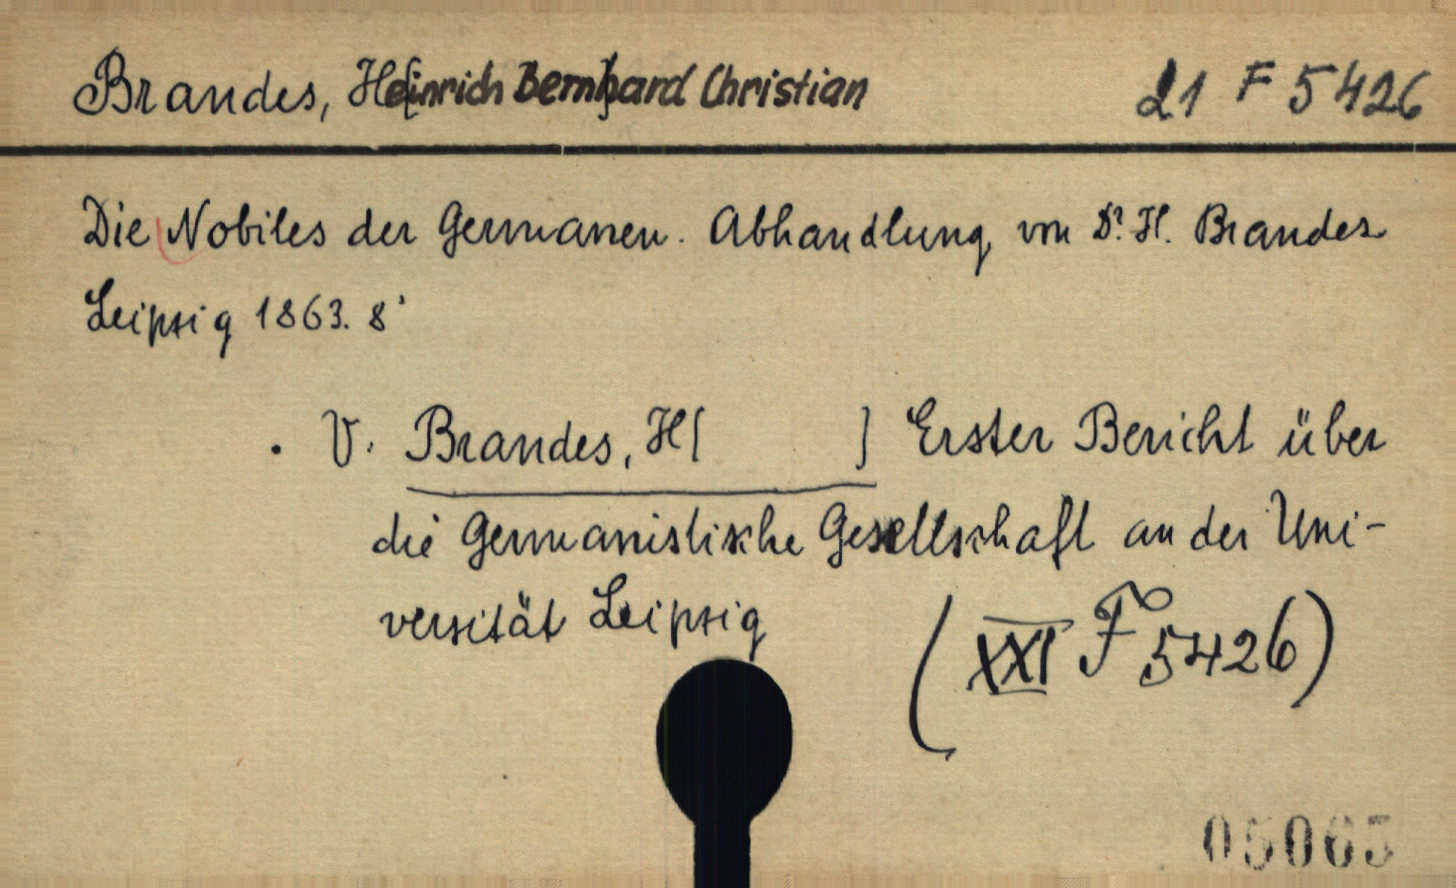 Brandes, H[einrich Bernhard Christian 21 F 5426
Die Nobiles der Germanen. Abhandlung von Dr. H. Brandes
Leipzig 1863. 8°
. V. Brandes, H[ ] Erster Bericht über
die Germanistische Gesellschaft an der Uni-
versität Leipzig
(XXI F 5426)
05065